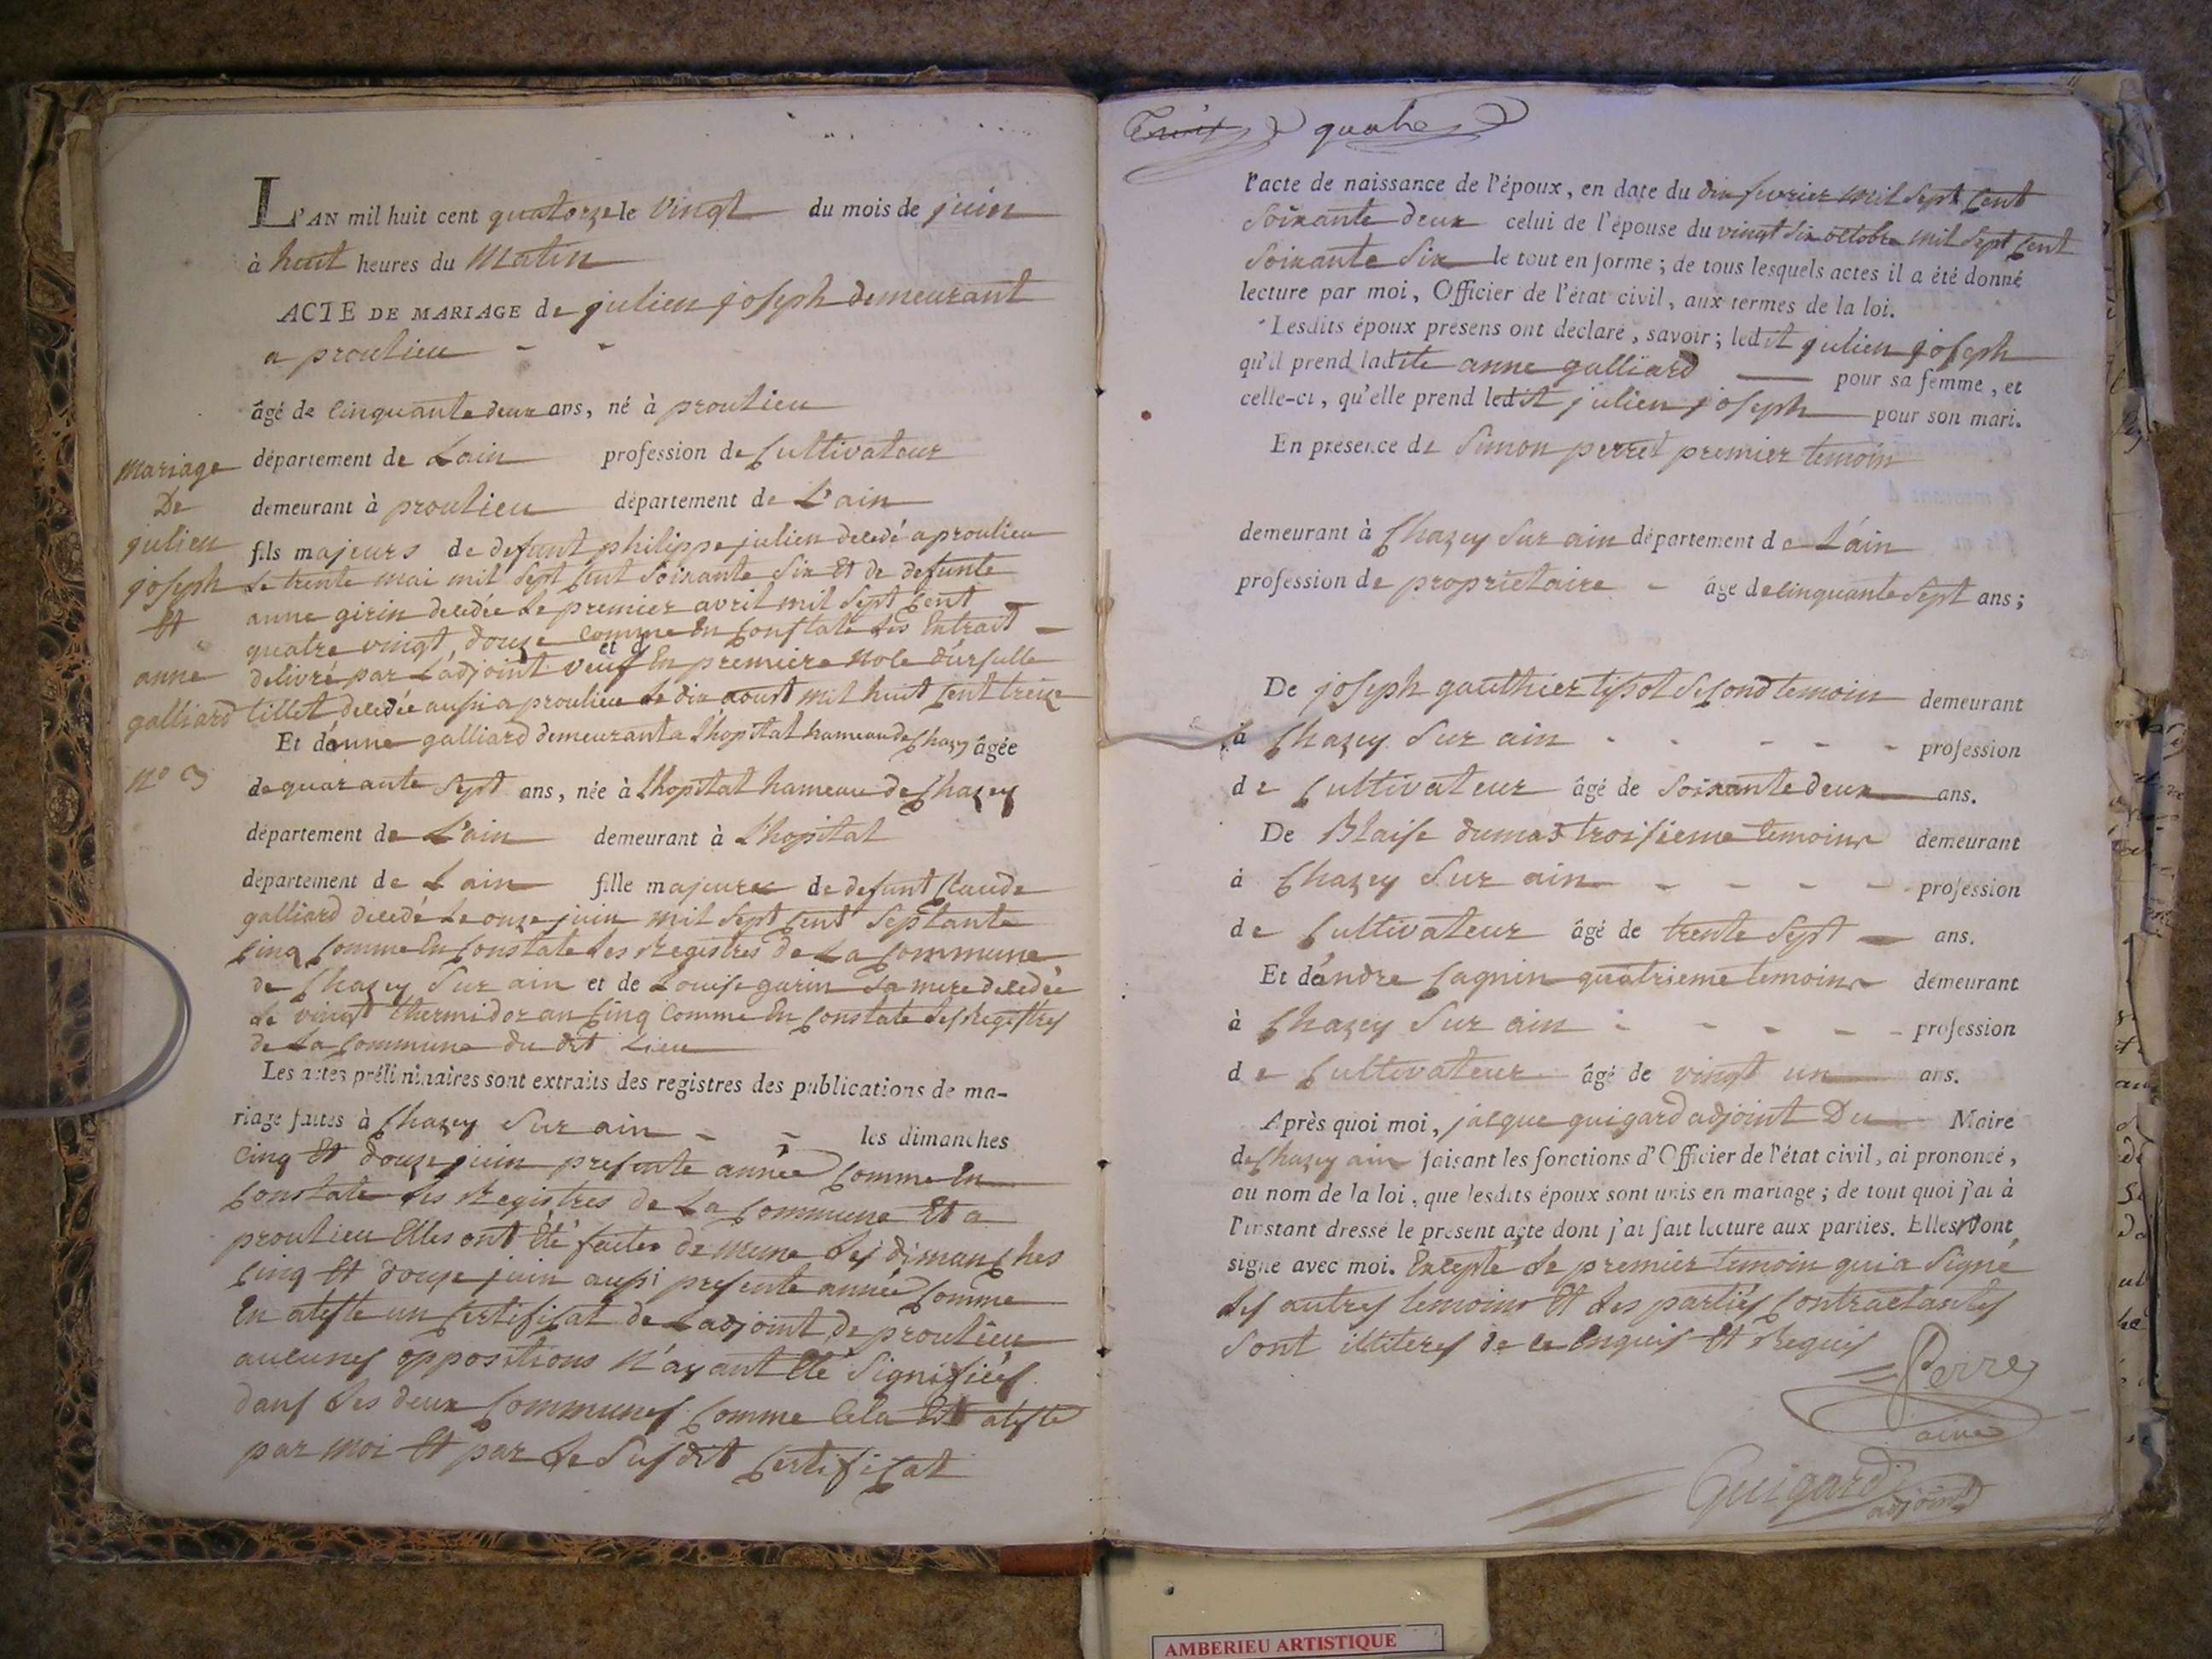 L'AN mil huit cent quatorze le vingt du mois de juin
à huit heures du Matin
ACTE DE MARIAGE de julien joseph demeurant
a proulieu - -
âgé de Cinquante deux ans, né à proulieu
département de Lain profession de Cultivateur
demeurant à proulieu département de L'ain
fils majeurs de defunt philippe julien decedé a proulieu
Le trente mai mil Sept Cent Soixante Six Et de defunte
anne girin decedée Le premier avril mil Sept Cent
quatre vingt douze Comme En Constate Les Extrait
delivré par L'adjoint et veuf En premiere Nole d'ursulle
tillet decedée aussi a proulieu Le dix aoust mil huit Cent treize
Mariage
De
julien
joseph
Et
anne
galliard
N° 3
Et d'anne galliard demeurant a Lhopital hameau de Chazey âgée
de quarante Sept ans, née à Lhopital hameau de Chazey
département de L'ain demeurant à L'hopital
département de Lain fille majeure de defunt Claude
galliard decedé Le onze juin mil Sept Cent Septante
Cinq Comme En Constate Les Registres de La Commune
de Chazey Sur ain et de Louise garin Sa mere decedée
Le vingt thermidor an Cinq Comme En Constate Les Registres
de La Commune du dit Lieu
Les actes préliminaires sont extraits des registres des publications de ma-
riage faites à Chazey Sur ain - - les dimanches
Cinq Et douze juin presente année Comme En
Constate Les Registres de La Commune Et a
proulieu Elles ont Eté faites de meme Les dimanches
Cinq Et douze juin aussi presente année Comme
En ateste un Certificat de Ladjoint de proulieu
aucunes oppositions N'ayant Eté Signifiées
dans Les deux Communes Comme Cela Est atesté
par moi Et par Le Susdit Certificat
Trois quatre
l'acte de naissance de l'époux, en date du dix fevrier mil Sept Cent
Soixante deux celui de l'épouse du vingt Six octobre mil Sept Cent
Soixante Six le tout en forme ; de tous lesquels actes il a été donné
lecture par moi, Officier de l'état civil, aux termes de la loi.
Lesdits époux présens ont déclaré, savoir ; ledit julien joseph
qu'il prend ladite anne galliard pour sa femme, et
celle-ci, qu'elle prend ledit julien joseph pour son mari.
En présence de Simon perret premier temoin
demeurant à Chazey Sur ain département de L'ain
profession de proprietaire - âgé de Cinquante Sept ans ;
De joseph gauthier tissot Second temoin demeurant
à Chazey Sur ain - - - - - profession
de Cultivateur âgé de Soixante deux ans.
De Blaise dumas troisieme temoins demeurant
à Chazey Sur ain - - - - profession
de Cultivateur âgé de trente Sept ans.
Et d'andre Cagnin quatrieme temoins demeurant
à Chazey Sur ain - - - - - profession
de Cultivateur âgé de vingt un ans.
Après quoi moi, jacque guigard adjoint Du Maire
de Chazey ain faisant les fonctions d'Officier de l'état civil, ai prononcé,
au nom de la loi, que lesdits époux sont unis en mariage ; de tout quoi j'ai à
l'instant dressé le présent acte dont j'ai fait lecture aux parties. Elles N'ont
signé avec moi. Excepté Le premier temoin qui a Signé
Les autres temoins Et Les parties Contractantes
Sont illiteres de ce Enquis Et Requis
Perret
ainé
Guigard
adjoint
AMBERIEU ARTISTIQUE